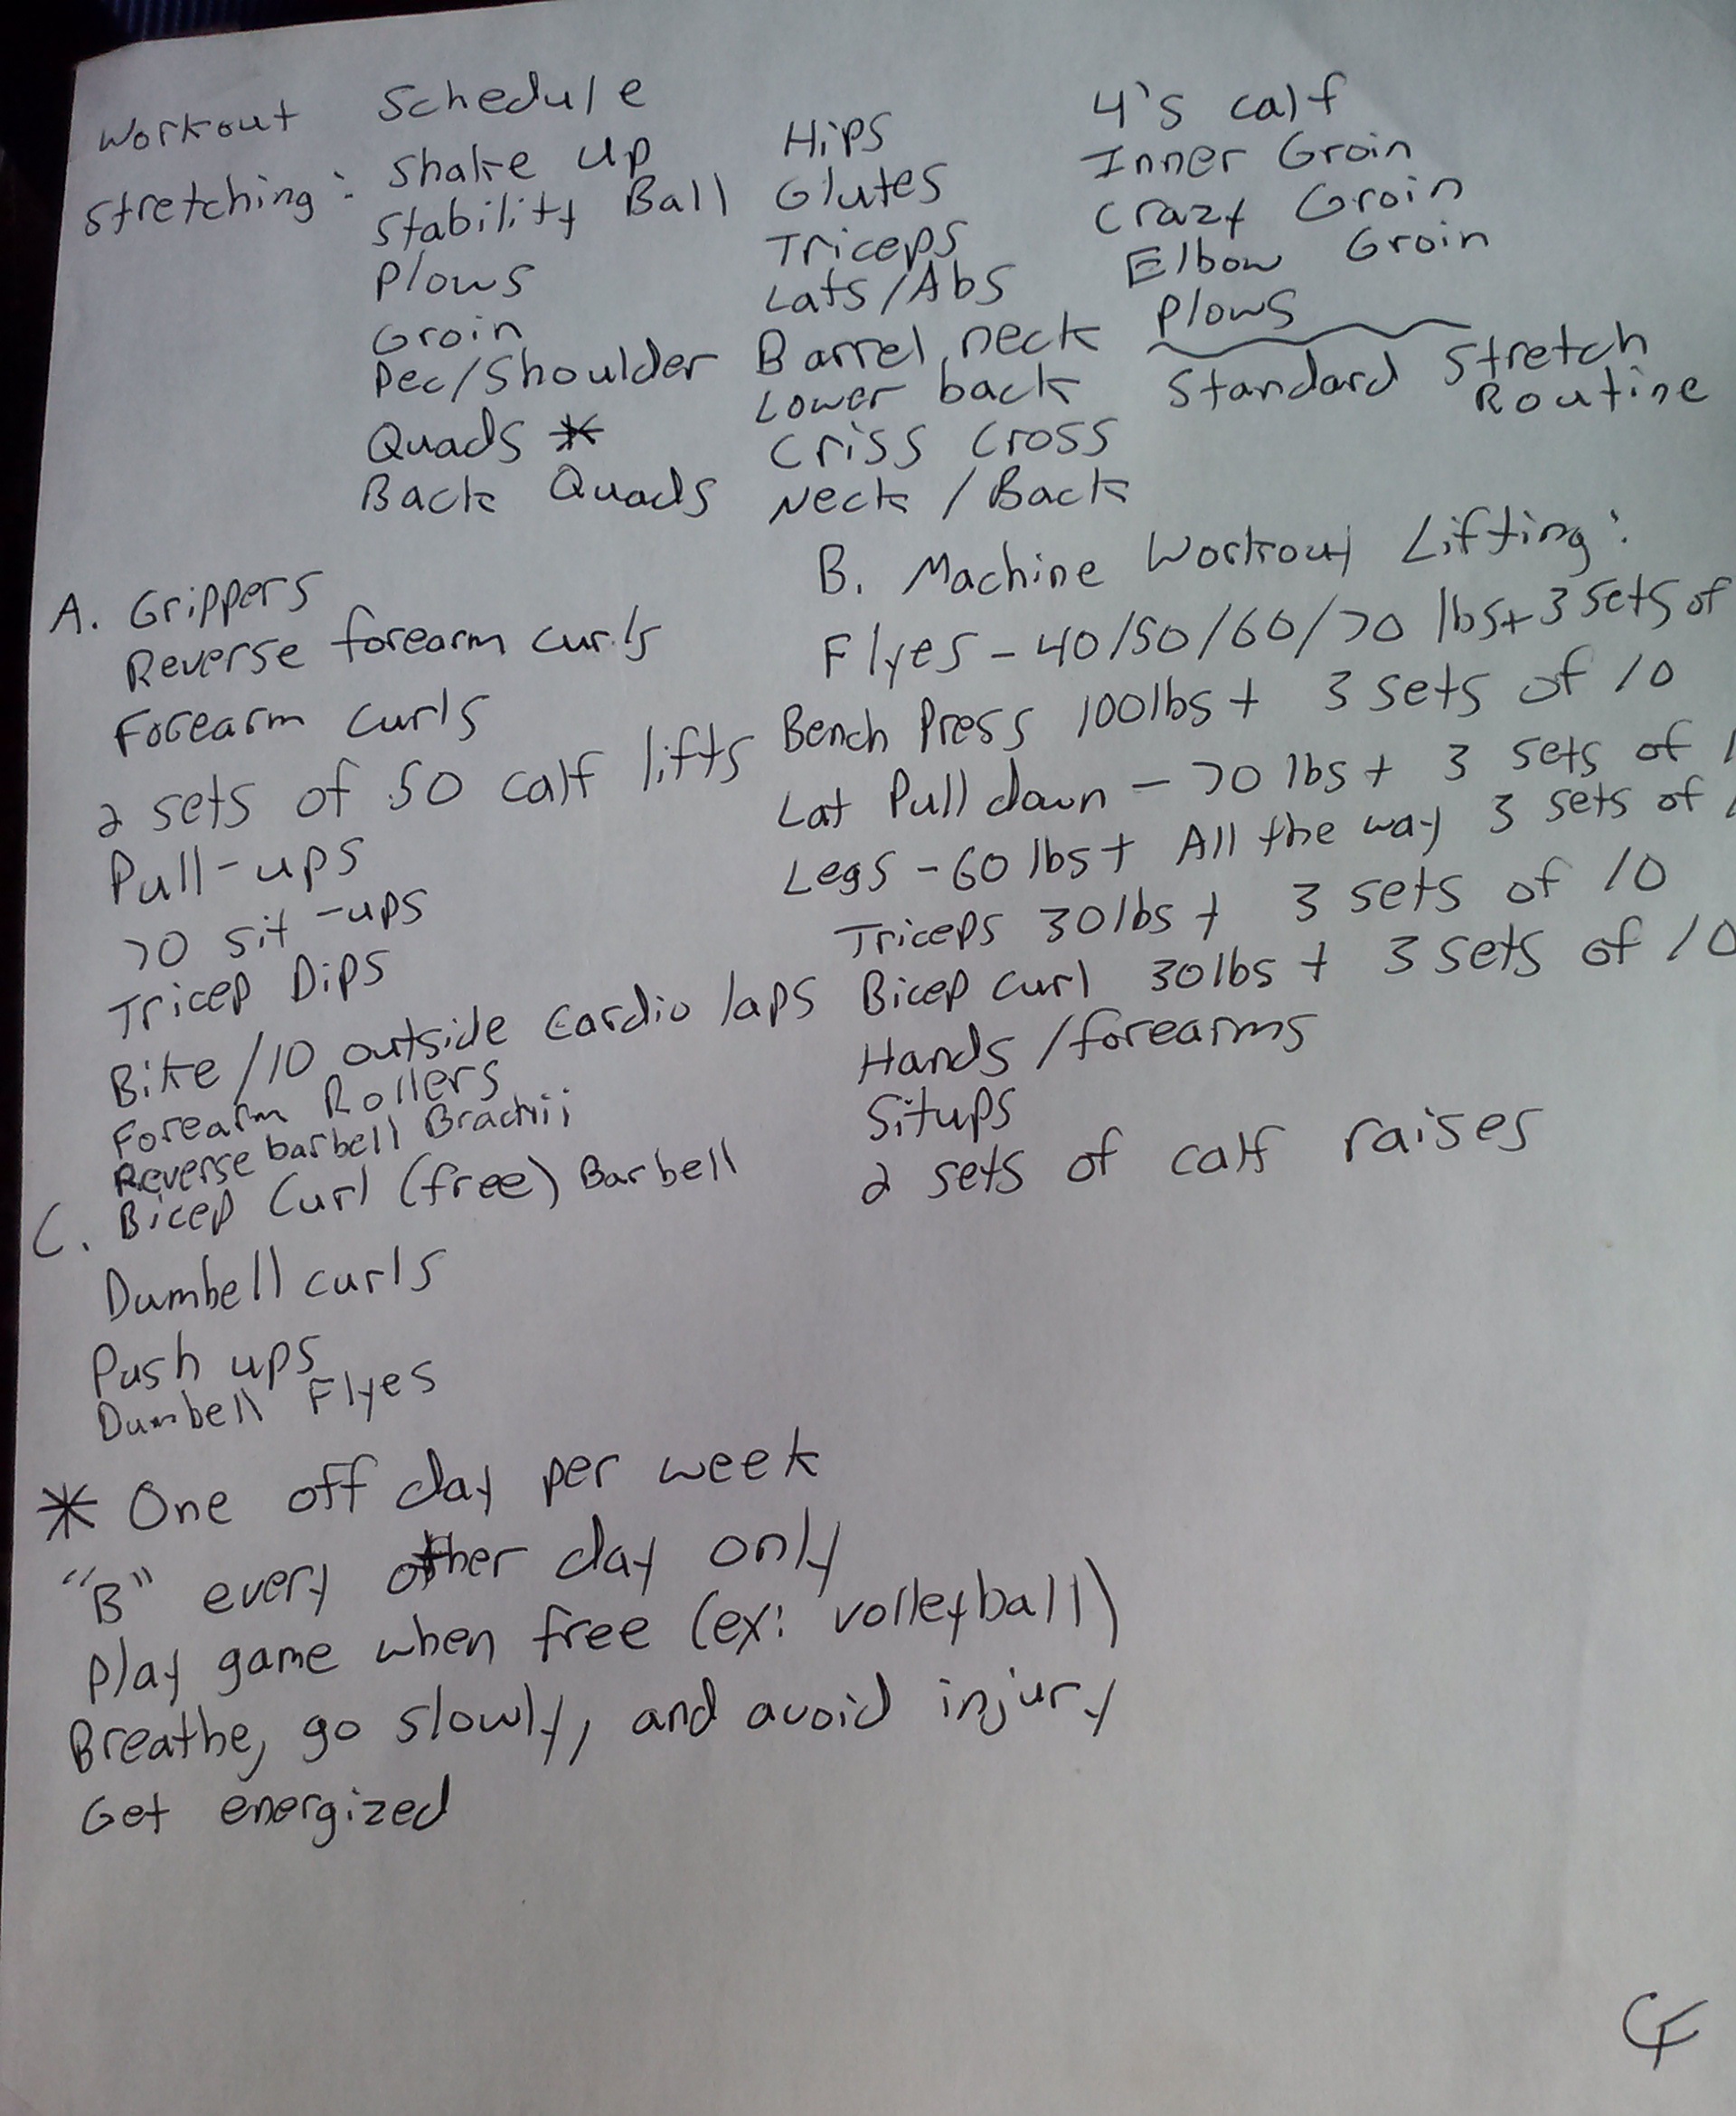 Workout Schedule
Stretching:
Shake up
Stability Ball
Plows
Groin
Pec/Shoulder
Quads *
Back Quads
Hips
Glutes
Triceps
Lats/Abs
Barrel, neck
Lower back
Criss Cross
Neck / Back
4's calf
Inner Groin
Crazy Groin
Elbow Groin
Plows
Standard Stretch
Routine
A. Grippers
Reverse forearm curls
Forearm curls
2 sets of 50 calf lifts
Pull-ups
70 sit-ups
Tricep Dips
Bike/10 outside cardio laps
Forearm Rollers
Reverse barbell Brachii
C. Bicep Curl (free) Barbell
Dumbell curls
Push ups
Dumbell Flyes
B. Machine Workout Lifting:
Flyes - 40/50/60/70 lbs+ 3 sets of
Bench Press 100lbs + 3 sets of 10
Lat Pull down - 70 lbs + 3 sets of
Legs - 60 lbs + All the way 3 sets of
Triceps 30lbs + 3 sets of 10
Bicep Curl 30lbs + 3 sets of 10
Hands /forearms
Situps
2 sets of calf raises
* One off day per week
"B" every other day only
Play game when free (ex: volleyball)
Breathe, go slowly, and avoid injury
Get energized